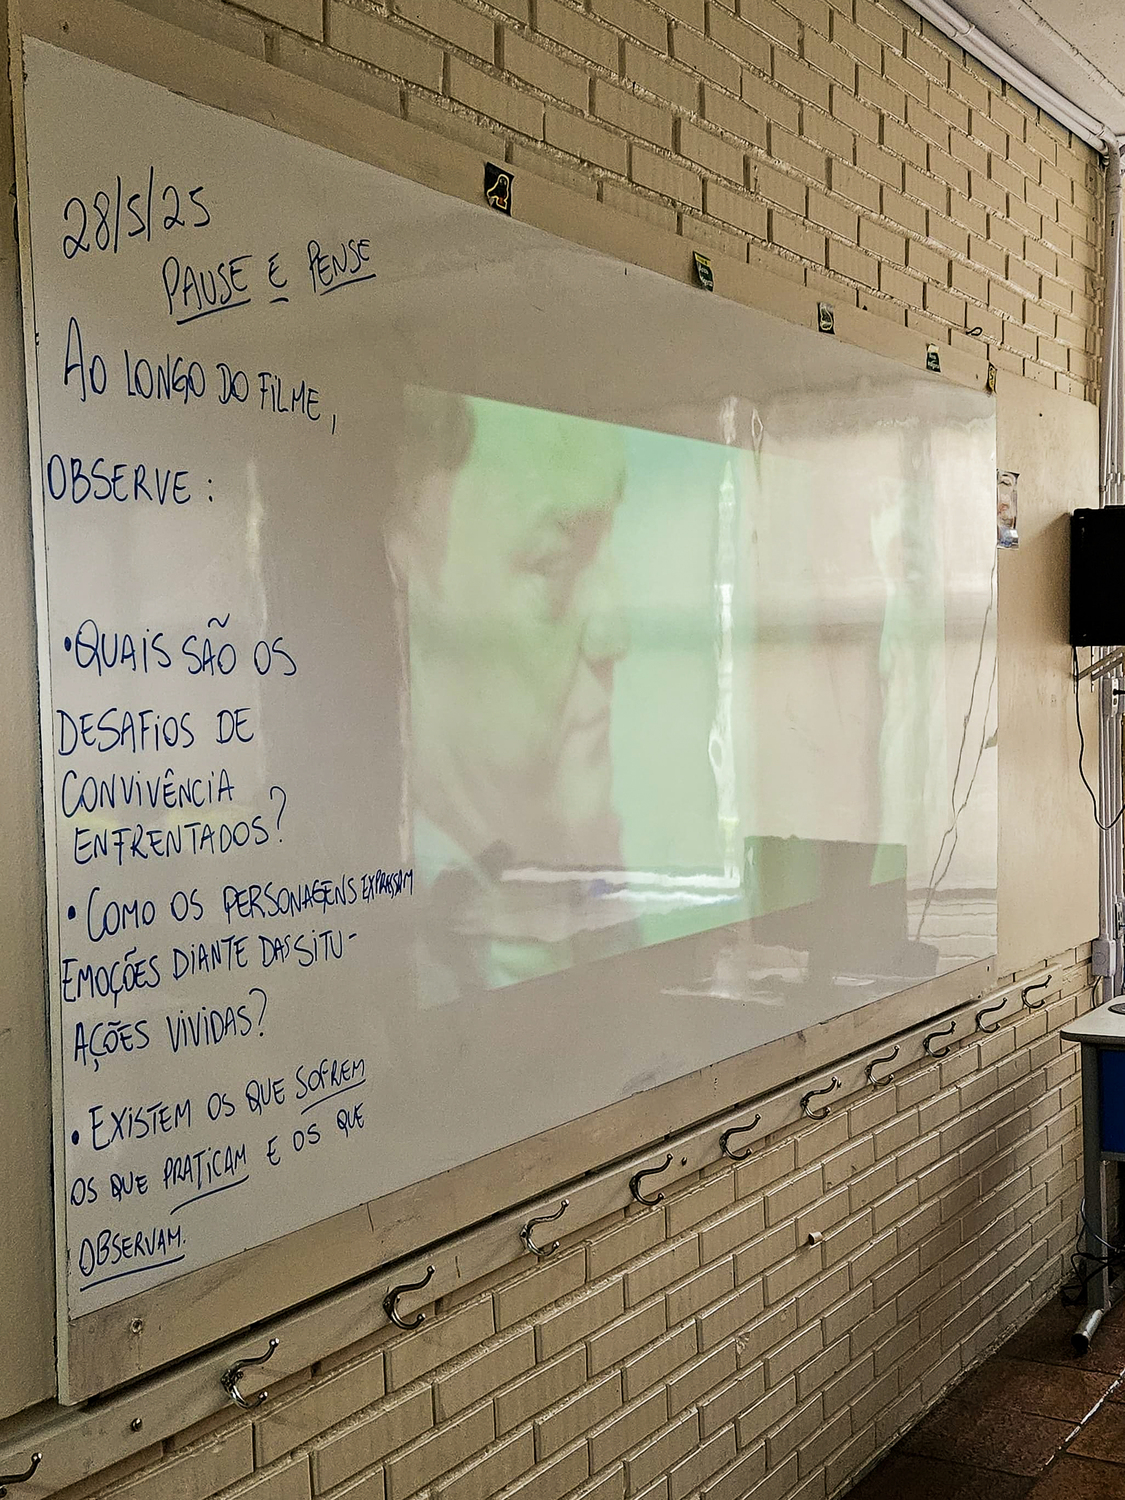 28/5/25
PAUSE E PENSE
AO LONGO DO FILME,
OBSERVE:
•QUAIS SÃO OS
DESAFIOS DE
CONVIVÊNCIA
ENFRENTADOS?
•COMO OS PERSONAGENS EXPRESSAM
EMOÇÕES DIANTE DAS SITU-
AÇÕES VIVIDAS?
•EXISTEM OS QUE SOFREM
OS QUE PRATICAM E OS QUE
OBSERVAM.